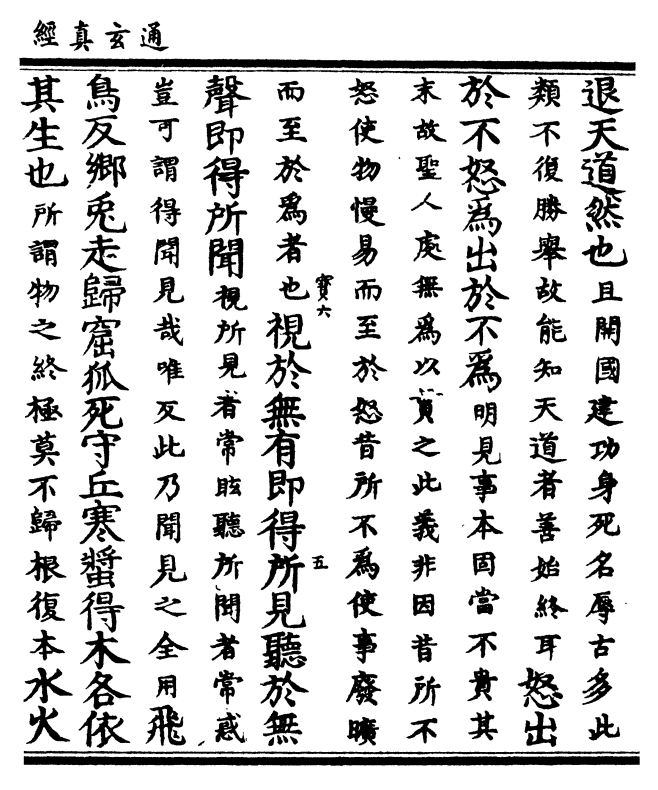 通玄真經
退天道然也且開國建功身死名辱古多此
類不復勝舉故能知天道者善始終耳怒出
於不怒爲出於不爲明見事本固當不貴其
末故聖人處無爲以質之此義非因昔所不
怒使物慢易而至於怒昔所不爲使事廢曠
而至於爲者也視於無有即得所見聽於無
寳六
五
聲即得所聞視所見者常眩聽所聞者常惑
豈可謂得聞見哉唯反此乃聞見之全用飛
鳥反鄉兎走歸窟狐死守丘寒螿得木各依
其生也所謂物之終極莫不歸根復本水火